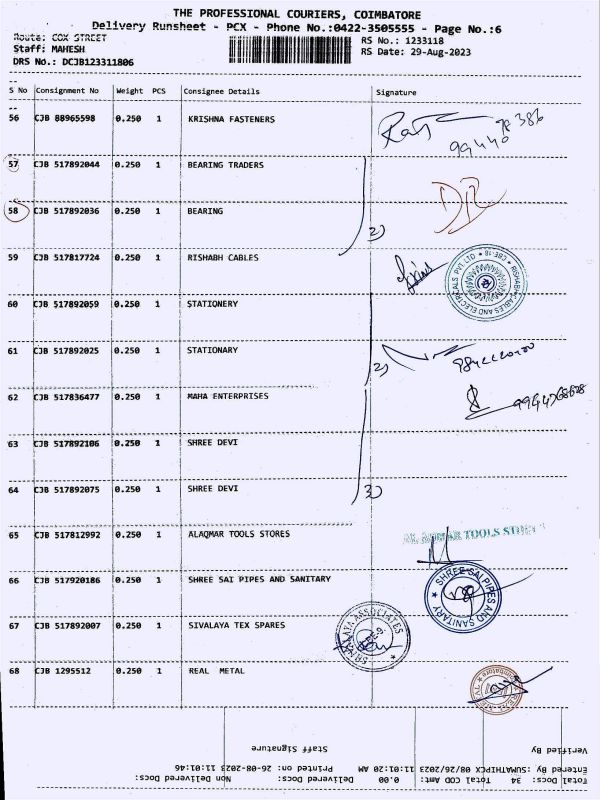 THE PROFESSIONAL COURIERS, COIMBATORE
Delivery Runsheet - PCX - Phone No.:0422-3505555 - Page No.:6
Route: COX STREET
RS No.: 1233118
Staff: MAHESH
RS Date: 29-Aug-2023
DRS No.: DCJB123311806
S No Consignment No Weight PCS Consignee Details Signature
56 CJB 88965598 0.250 1 KRISHNA FASTENERS
57 CJB 517892044 0.250 1 BEARING TRADERS
58 CJB 517892036 0.250 1 BEARING
2)
59 CJB 517817724 0.250 1 RISHABH CABLES
RISHABH CABLES AND ELECTRICALS PVT LTD * CBE-18 *
60 CJB 517892059 0.250 1 STATIONERY
61 CJB 517892025 0.250 1 STATIONARY
2)
62 CJB 517836477 0.250 1 MAHA ENTERPRISES
63 CJB 517892106 0.250 1 SHREE DEVI
64 CJB 517892075 0.250 1 SHREE DEVI
3)
65 CJB 517812992 0.250 1 ALAQMAR TOOLS STORES
AL AQMAR TOOLS
66 CJB 517920186 0.250 1 SHREE SAI PIPES AND SANITARY
SHREE SAI PIPES AND SANITARY
67 CJB 517892007 0.250 1 SIVALAYA TEX SPARES
ASSOCIATES
68 CJB 1295512 0.250 1 REAL METAL
REAL METAL
Total Docs: 34 Total COD Amt: 0.00 Delivered Docs: Non Delivered Docs:
Entered By :SUMATHIPCX 08/26/2023 11:01:20 AM Printed on: 26-08-2023 11:01:46
Verified By Staff Signature